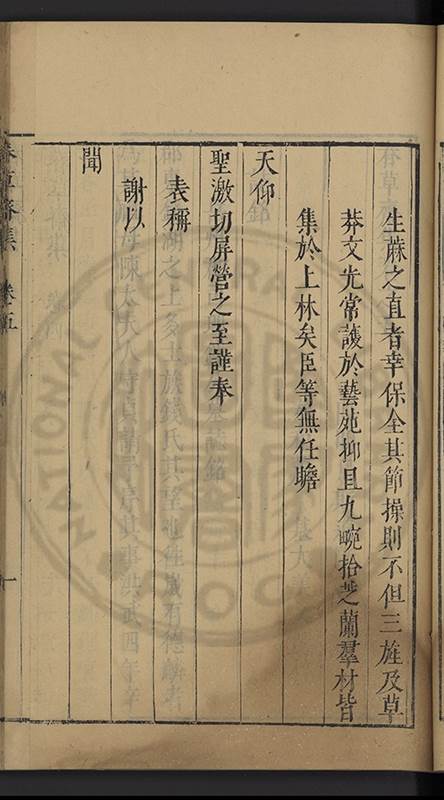 生蔴之直者幸保全其節操則不但三旌及草
莽文光常護於藝苑抑且九畹拾芝蘭羣材皆
集於上林矣臣等無任瞻
天仰
聖激切屏營之至謹奉
表稱
謝以
聞
春草齋集 卷五